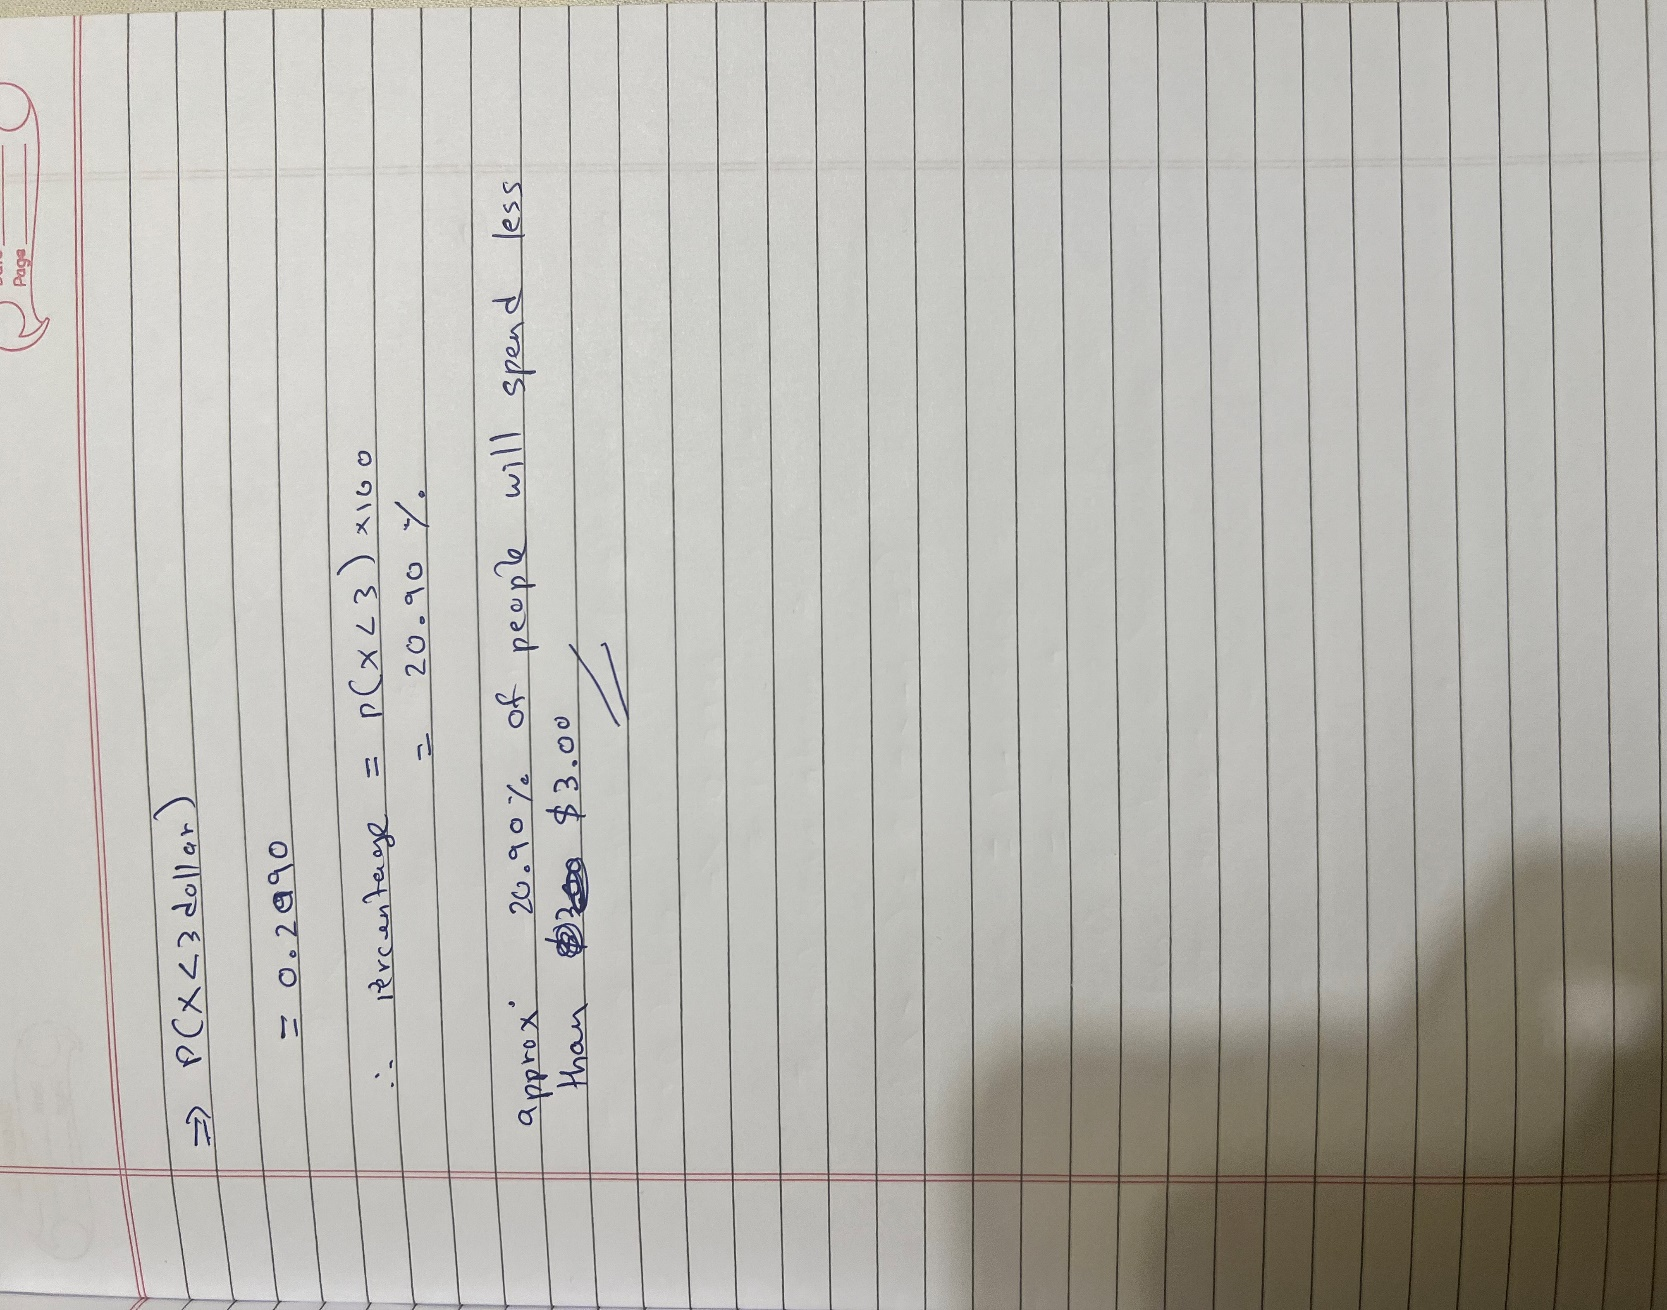 Page
⇒ P(X<3 dollar)
= 0.2090
∴ Percentage = P(X<3) ×100
= 20.90 %.
approx. 20.90% of people will spend less
than $3.00